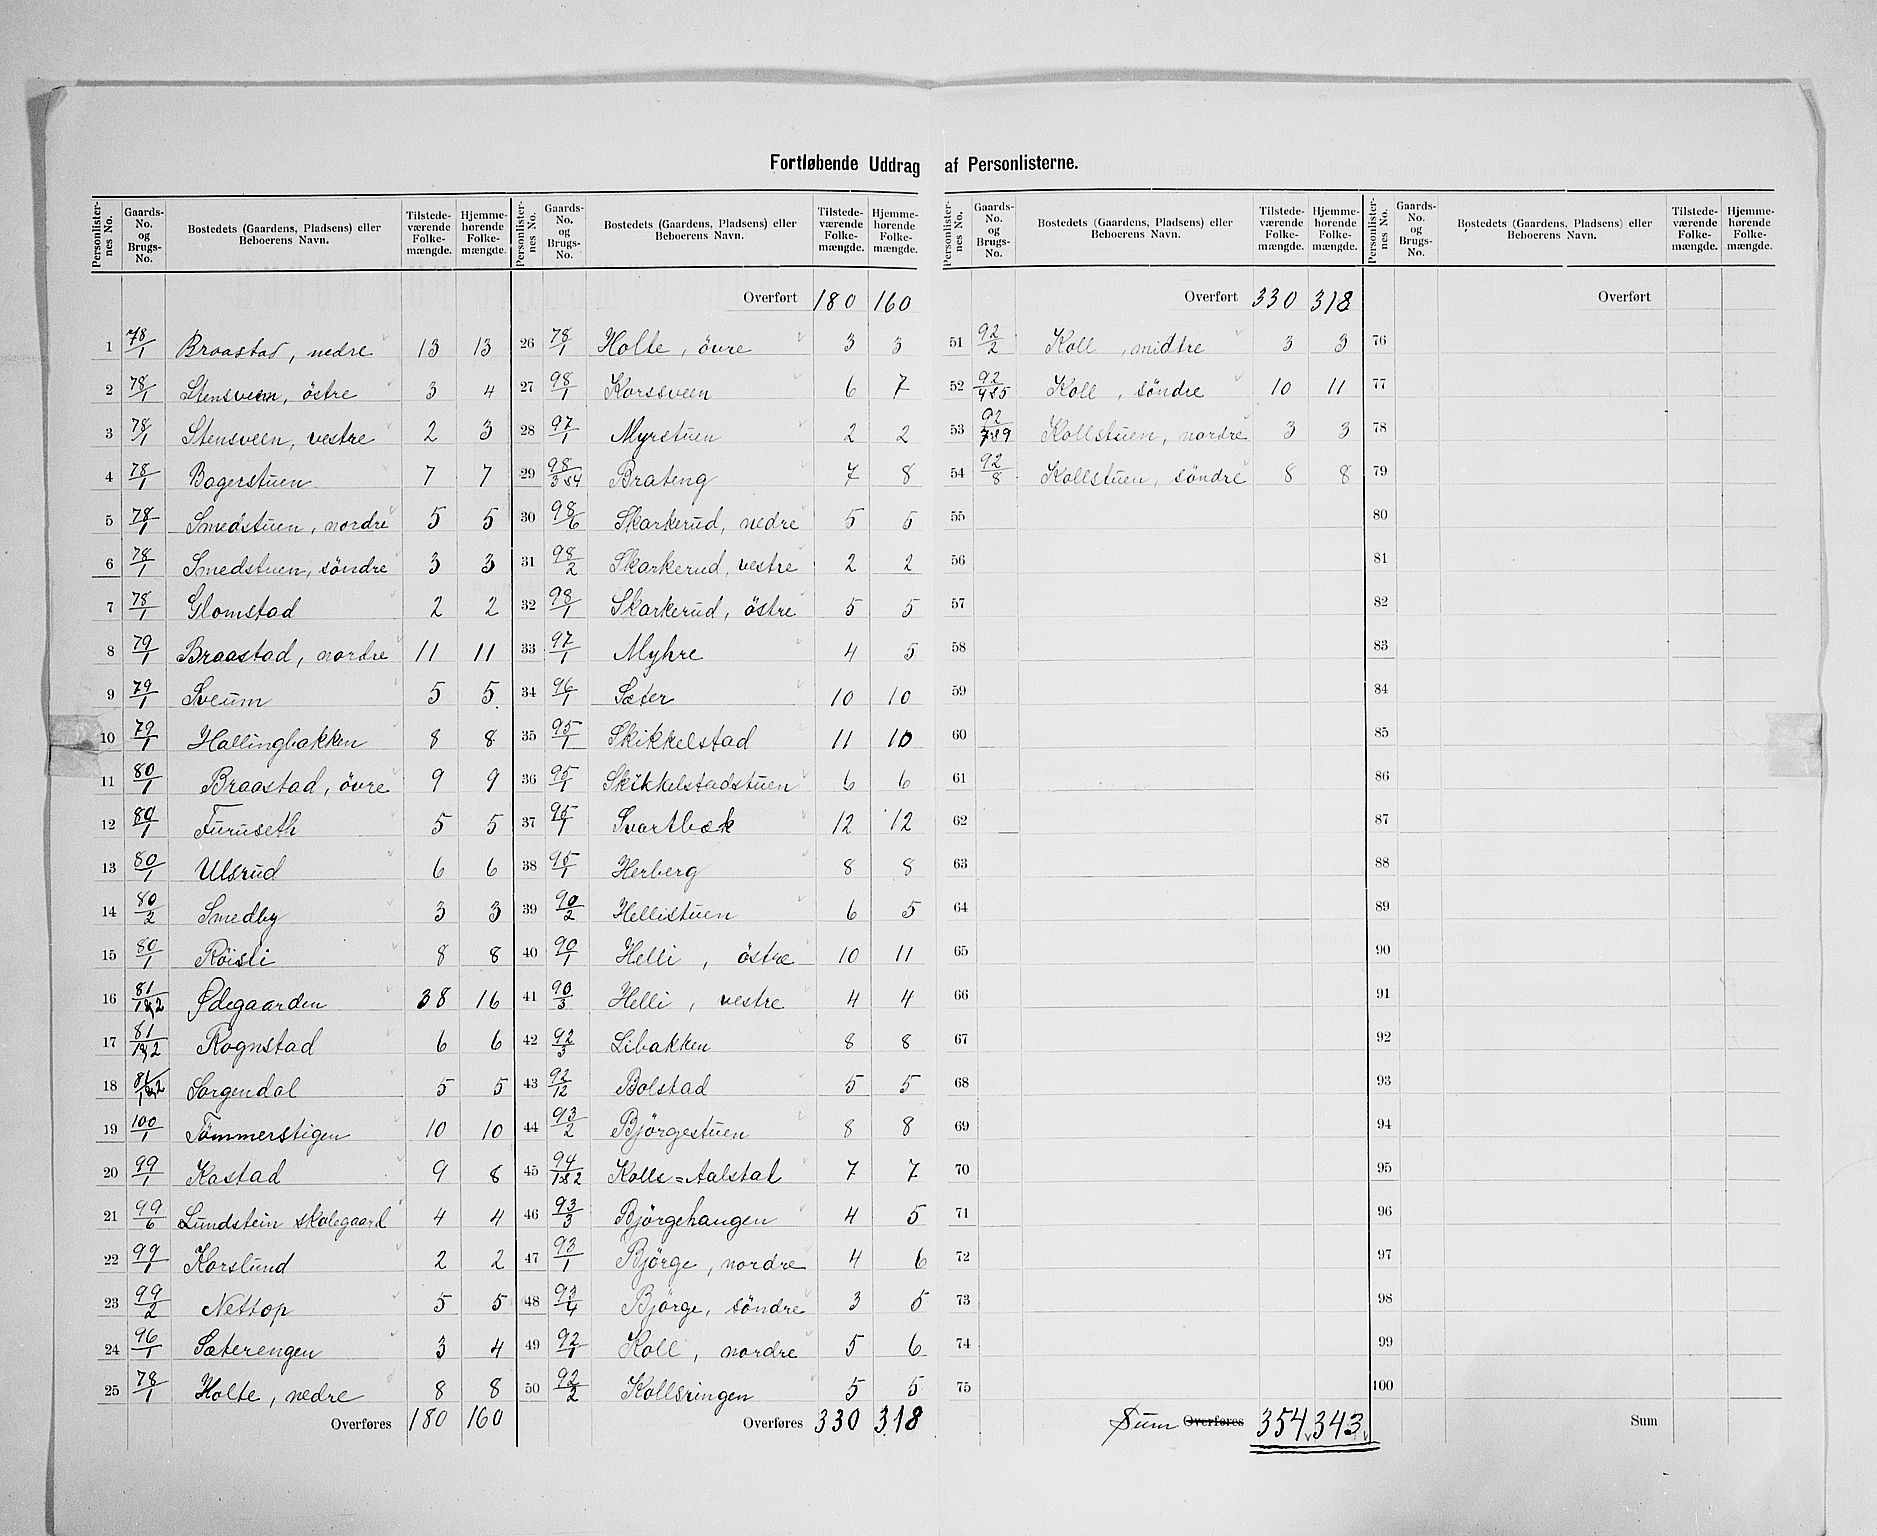 Fortløbende Uddrag af Personlisterne.
Personlister-nes No. Gaards-No. og Brugs-No. Bostedets (Gaardens, Pladsens) eller Beboerens Navn. Tilstede-værende Folke-mængde. Hjemme-hørende Folke-mængde.
1 78/1 Braastad, nedre 13 13
2 78/1 Stensveen, östre 3 4
3 78/1 Stensveen, vestre 2 3
4 78/1 Bagerstuen 7 7
5 78/1 Smedstuen, nordre 5 5
6 78/1 Smedstuen, söndre 3 3
7 78/1 Glomstad 2 2
8 79/1 Braastad, nordre 11 11
9 79/1 Sveum 5 5
10 79/1 Hallingbakken 8 8
11 80/1 Braastad, övre 9 9
12 80/1 Furuseth 5 5
13 80/1 Ulsrud 6 6
14 80/2 Smedby 3 3
15 80/1 Röisli 8 8
16 81/1&2 Ødegaarden 38 16
17 81/1&2 Rognstad 6 6
18 81/1&2 Sorgendal 5 5
19 100/1 Tömmerstigen 10 10
20 99/1 Kastad 9 8
21 99/6 Lundstein skolegaard 4 4
22 99/1 Korslund 2 2
23 99/2 Nettop 5 5
24 96/1 Sæterengen 3 4
25 78/1 Holte, nedre 8 8
Overføres 180 160
Personlister-nes No. Gaards-No. og Brugs-No. Bostedets (Gaardens, Pladsens) eller Beboerens Navn. Tilstede-værende Folke-mængde. Hjemme-hørende Folke-mængde.
Overført 180 160
26 78/1 Holte, övre 3 3
27 98/1 Korsveen 6 7
28 97/1 Myrstuen 2 2
29 98/3&4 Brateng 7 8
30 98/6 Skarkerud, nedre 5 5
31 98/2 Skarkerud, vestre 2 2
32 98/1 Skarkerud, östre 5 5
33 97/1 Myhre 4 5
34 96/1 Sæter 10 10
35 95/1 Skikkelstad 11 10
36 95/1 Skikkelstadstuen 6 6
37 95/1 Svartbæk 12 12
38 95/1 Herberg 8 8
39 90/2 Hellistuen 6 5
40 90/1 Helli, östre 10 11
41 90/3 Helli, vestre 4 4
42 92/3 Libakken 8 8
43 92/12 Bolstad 5 5
44 93/2 Björgestuen 8 8
45 94/1&2 Kolls=Aalstad 7 7
46 93/3 Björgehaugen 4 5
47 93/1 Björge, nordre 4 6
48 93/4 Björge, söndre 3 5
49 92/1 Koll, nordre 5 6
50 92/2 Kollsringen 5 5
Overføres 330 318
Personlister-nes No. Gaards-No. og Brugs-No. Bostedets (Gaardens, Pladsens) eller Beboerens Navn. Tilstede-værende Folke-mængde. Hjemme-hørende Folke-mængde.
Overført 330 318
51 92/2 Koll, midtre 3 3
52 92/4&5 Koll, söndre 10 11
53 92/7&9 Kollstuen, nordre 3 3
54 92/8 Kollstuen, söndre 8 8
55
56
57
58
59
60
61
62
63
64
65
66
67
68
69
70
71
72
73
74
75
Sum Overføres 354 343
Personlister-nes No. Gaards-No. og Brugs-No. Bostedets (Gaardens, Pladsens) eller Beboerens Navn. Tilstede-værende Folke-mængde. Hjemme-hørende Folke-mængde.
Overført
76
77
78
79
80
81
82
83
84
85
86
87
88
89
90
91
92
93
94
95
96
97
98
99
100
Sum